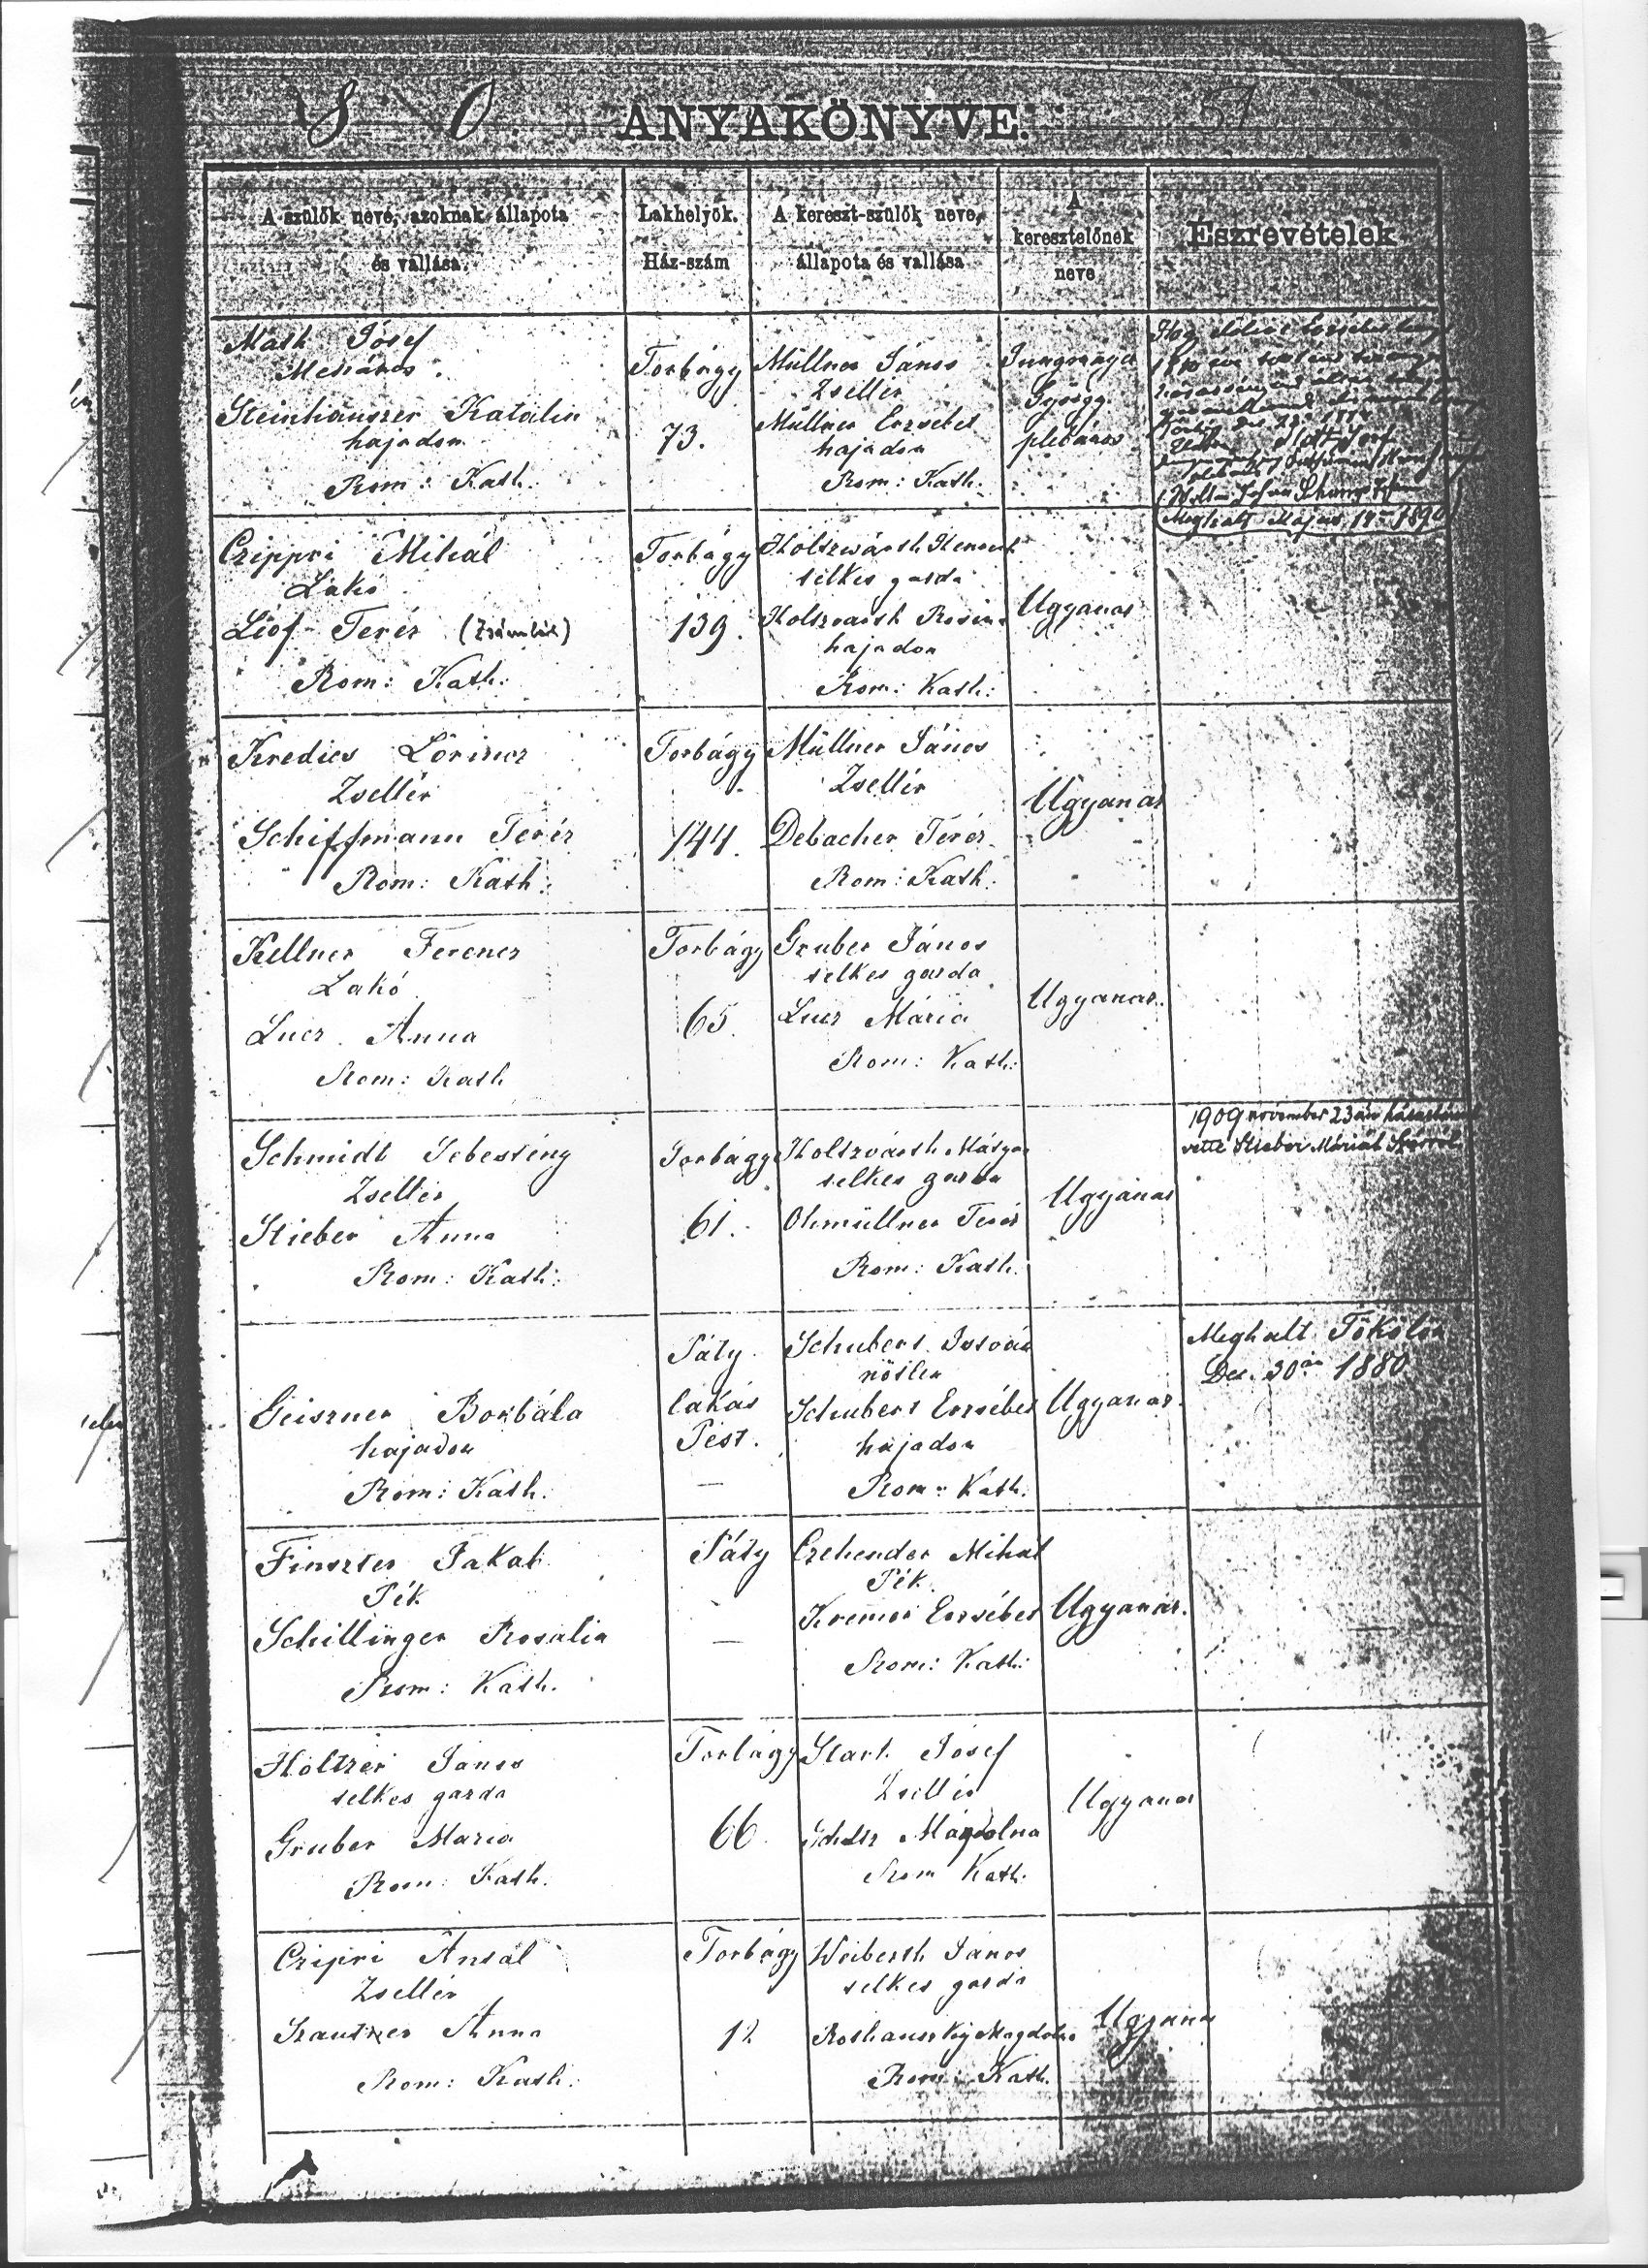 18 0 ANYAKÖNYVE. 51
A szülők neve, azoknak állapota
és vallása.
Lakhelyök.
Ház-szám
A kereszt-szülők neve,
állapota és vallása
A
keresztelőnek
neve
Észrevételek
Math Jósef
Mészáros
Steinhauszer Katalin
hajadon
Rom: Kath.
Torbágy
73.
Müllner János
Zsellér
Müllner Erzsébet
hajadon
Rom: Kath.
György
plébános
Meghalt Május 14én 1890
Czippri Mihál
Lakó
Lióf Teréz (Zsámbék)
Rom: Kath:
Torbágy
139.
selkes garda
Holszvarth Rosina
hajadon
Rom: Kath:
Ugyanaz
Kredics Lőrincz
Zsellér
Schiffmann Teréz
Rom: Kath:
Torbágy
144.
Müllner János
Zsellér
Debacher Teréz
Rom: Kath.
Ugyanaz
Kellner Ferencz
Lakó
Lucz Anna
Rom: Kath
Torbágy
65.
Gruber János
selkes garda
Lucz Mária
Rom: Kath:
Ugyanaz.
Schmidt Sebestény
Zsellér
Stieber Anna
Rom: Kath:
Torbágy
61.
Holtzvarth Mátyás
selkes garda
Ohmüllner Teréz
Rom: Kath:
Ugyanaz
1909 november 23án házastársul
vette Stieber Máriát
Geiszner Borbála
hajadon
Rom: Kath.
Páty
lakás
Pest.
—
Schubert István
nőtlen
Schubert Erzsébet
hajadon
Rom: Kath.
Ugyanaz.
Meghalt Tökölön
Dec. 30án 1880
Finszter Jakab
Pék
Schillinger Rosalia
Rom: Kath.
Páty
—
Czehender Mihál
Pék
Kremer Erzsébet
Rom: Kath:
Ugyanaz.
Holtzer János
selkes garda
Gruber Maria
Rom: Kath.
Torbágy
66.
Stark Jósef
Zsellér
Magdolna
Rom Kath.
Ugyanaz
Czipri Antal
Zsellér
Szautner Anna
Rom: Kath:
Torbágy
12
Weiberth János
selkes garda
Rothauszky Magdolna
Rom: Kath.
Ugyanaz